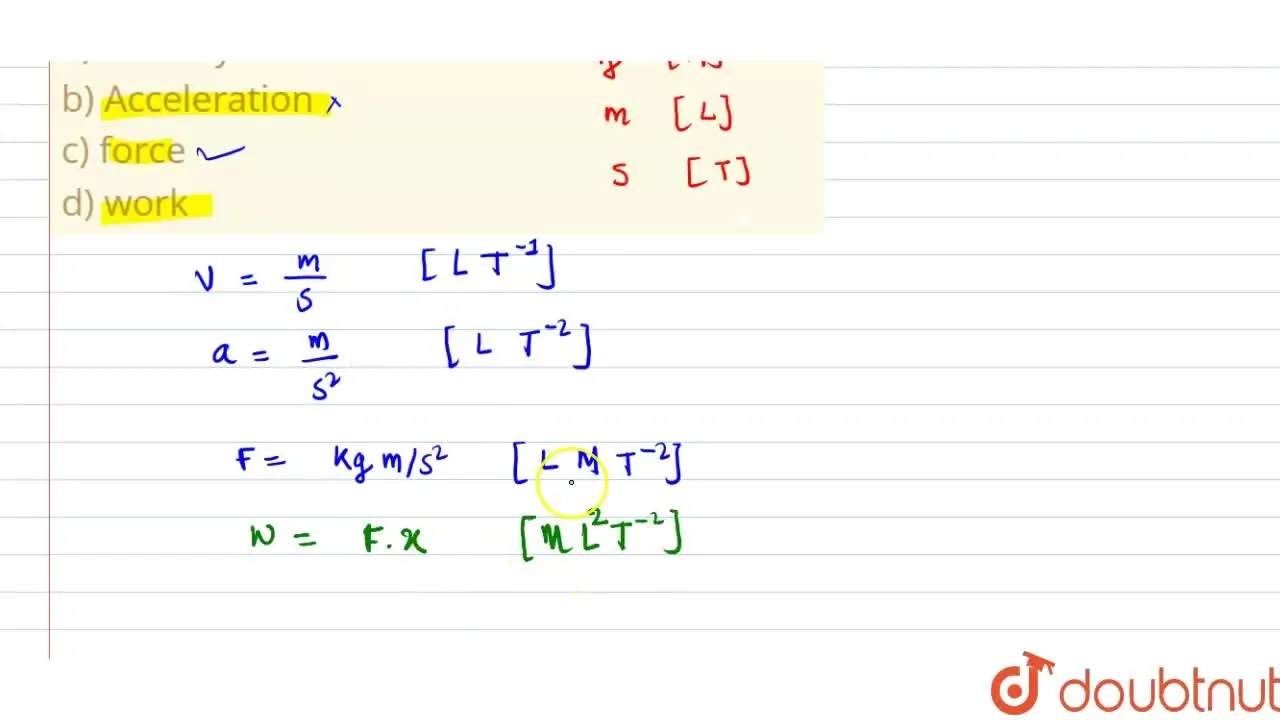 b) Acceleration x
m [L]
c) force ✓
s [T]
d) work
V = m/s [L T⁻¹]
a = m/s² [L T⁻²]
F = Kg m/s² [L M T⁻²]
W = F.x [M L² T⁻²]
doubtnut